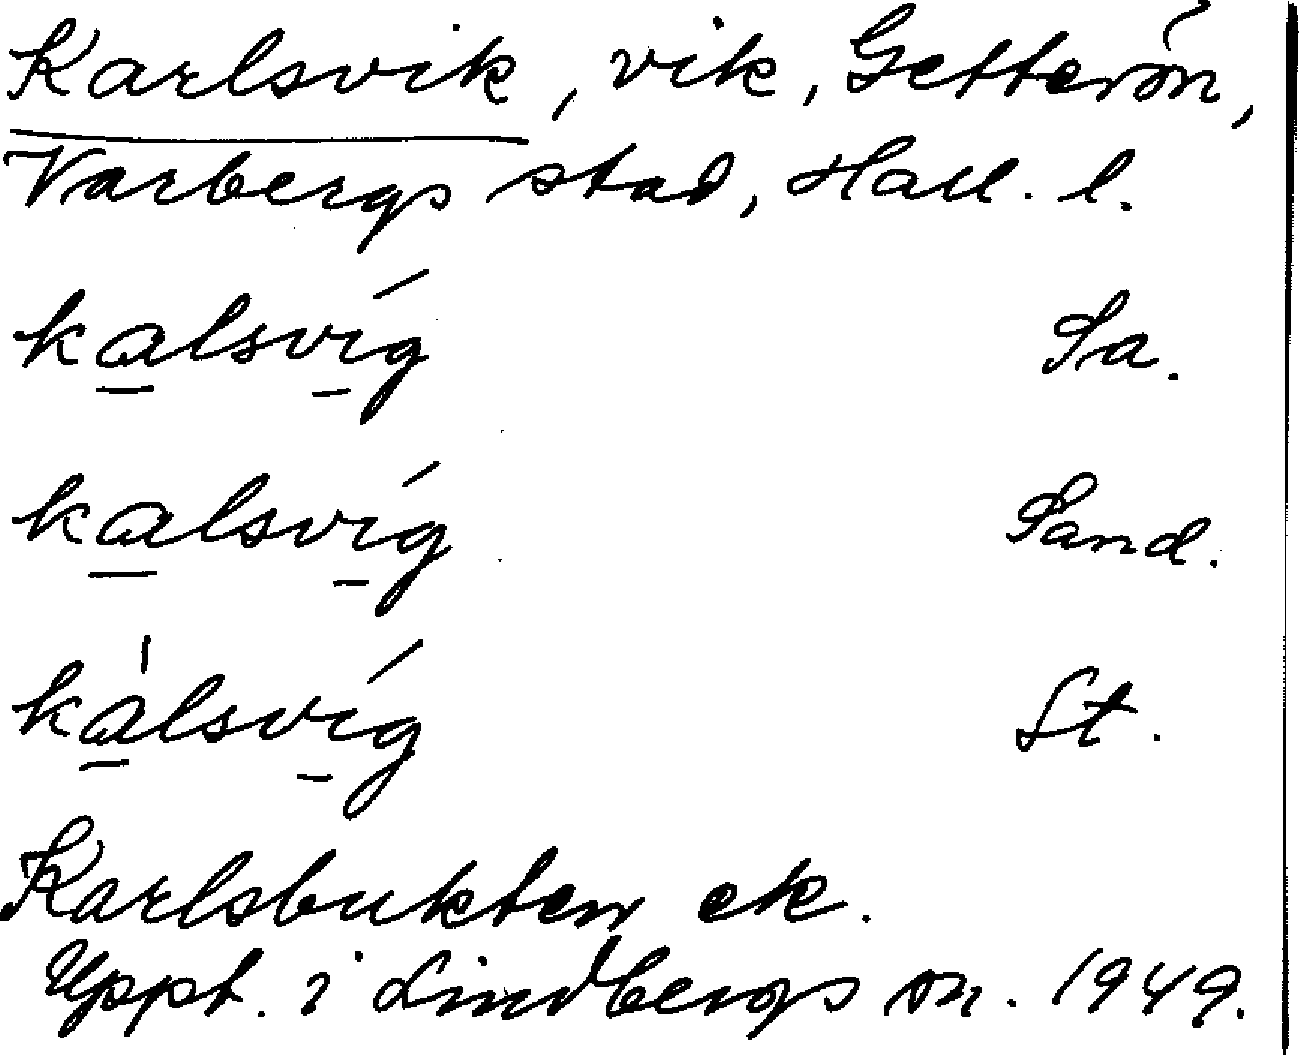 Karlsvik, vik, Getterön,
Varbergs stad, Hall. l.
kalsvíg Sa.
kalsvíg Sand.
ka̍lsvíg St.
Karlsbukten ek.
Uppt. i Lindbergs sn. 1949.